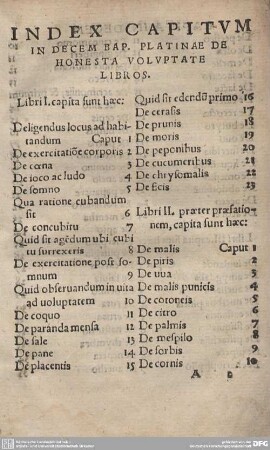 INDEX CAPITVM
IN DECEM BAP. PLATINAE DE
HONESTA VOLVPTATE
LIBROS.
Libri I. capita sunt hæc:
Deligendus locus ad habi
tandum Caput 1
De exercitatiõe corporis 2
De cœna 3
De ioco ac ludo 4
De somno 5
Qua ratione cubandum
sit 6
De concubitu 7
Quid sit agẽdum ubi cubi
tu surrexeris 8
De exercitatione post so-
mnum 9
Quid obseruandum in uita
ad uoluptatem 10
De coquo 11
De paranda mensa 12
De sale 13
De pane 14
De placentis 15
Quid sit edendũ primo 16
De cerasis 17
De prunis 18
De moris 19
De peponibus 20
De cucumeribus 21
De chrysomalis 22
De ficis 23
Libri II. præter præfatio-
nem, capita sunt hæc:
De malis Caput 1
De piris 2
De uua 3
De malis punicis 4
De cotoneis 5
De citro 6
De palmis 7
De mespilo 8
De sorbis 9
De cornis 10
A